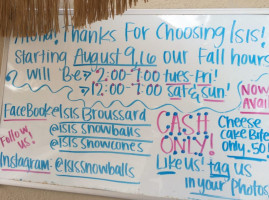 Aloha! Thanks For Choosing Isis!
Starting August 9,16 our Fall hours
will be 2:00-7:00 tues-Fri!
12:00-7:00 sat & sun!
NOW
FaceBook @Isis Broussard
@isis snowballs
@isis snowcones
Follow us!
Instagram- @isissnowballs
CASH
ONLY!
Cheese
cake Bites
Only .50!
Like us! tag us
in your Photos